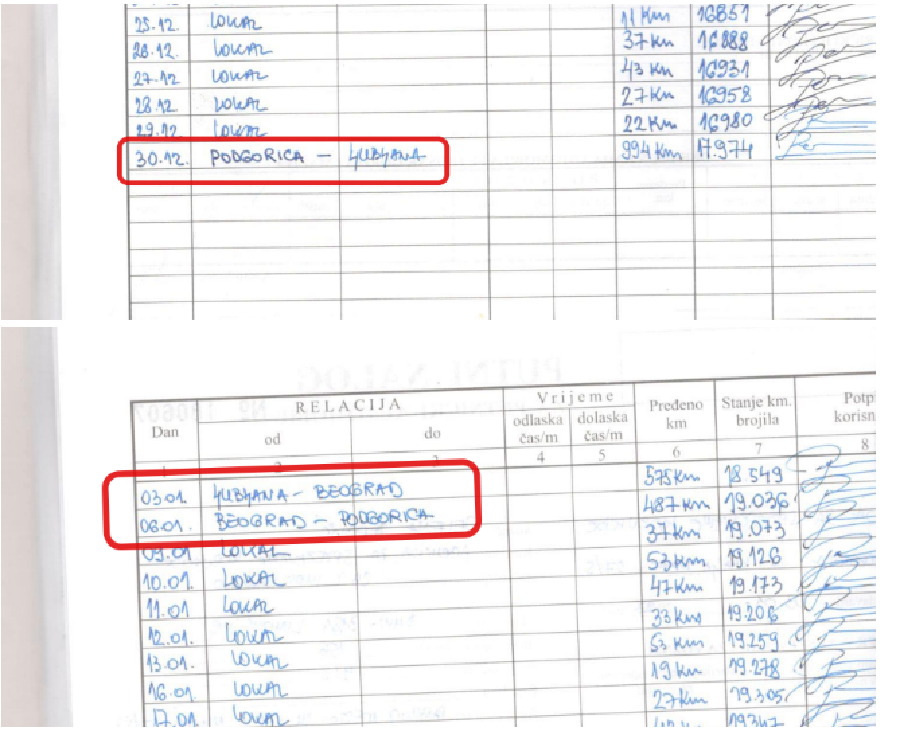 25.12. LOKAL 11 Km 16851
26.12. LOKAL 37 Km 16888
27.12 LOKAL 43 Km 16931
28.12 LOKAL 27 Km 16958
29.12 LOKAL 22 Km 16980
30.12. PODGORICA - LJUBLJANA 994 Km 17.974
RELACIJA Vrijeme
Dan od do odlaska čas/m dolaska čas/m Pređeno km Stanje km. brojila Potp korisn
2 3 4 5 6 7 8
03.01. LJUBLJANA - BEOGRAD 575 Km 18 549
06.01. BEOGRAD - PODGORICA 487 Km 19.036
09.01 LOKAL 37 Km 19.073
10.01. LOKAL 53 Km 19.126
11.01 LOKAL 47 Km 19.173
12.01. LOKAL 33 Km 19.206
13.01. LOKAL 53 Km 19.259
16.01. LOKAL 19 Km 19.278
17.01 LOKAL 27 Km 19.305